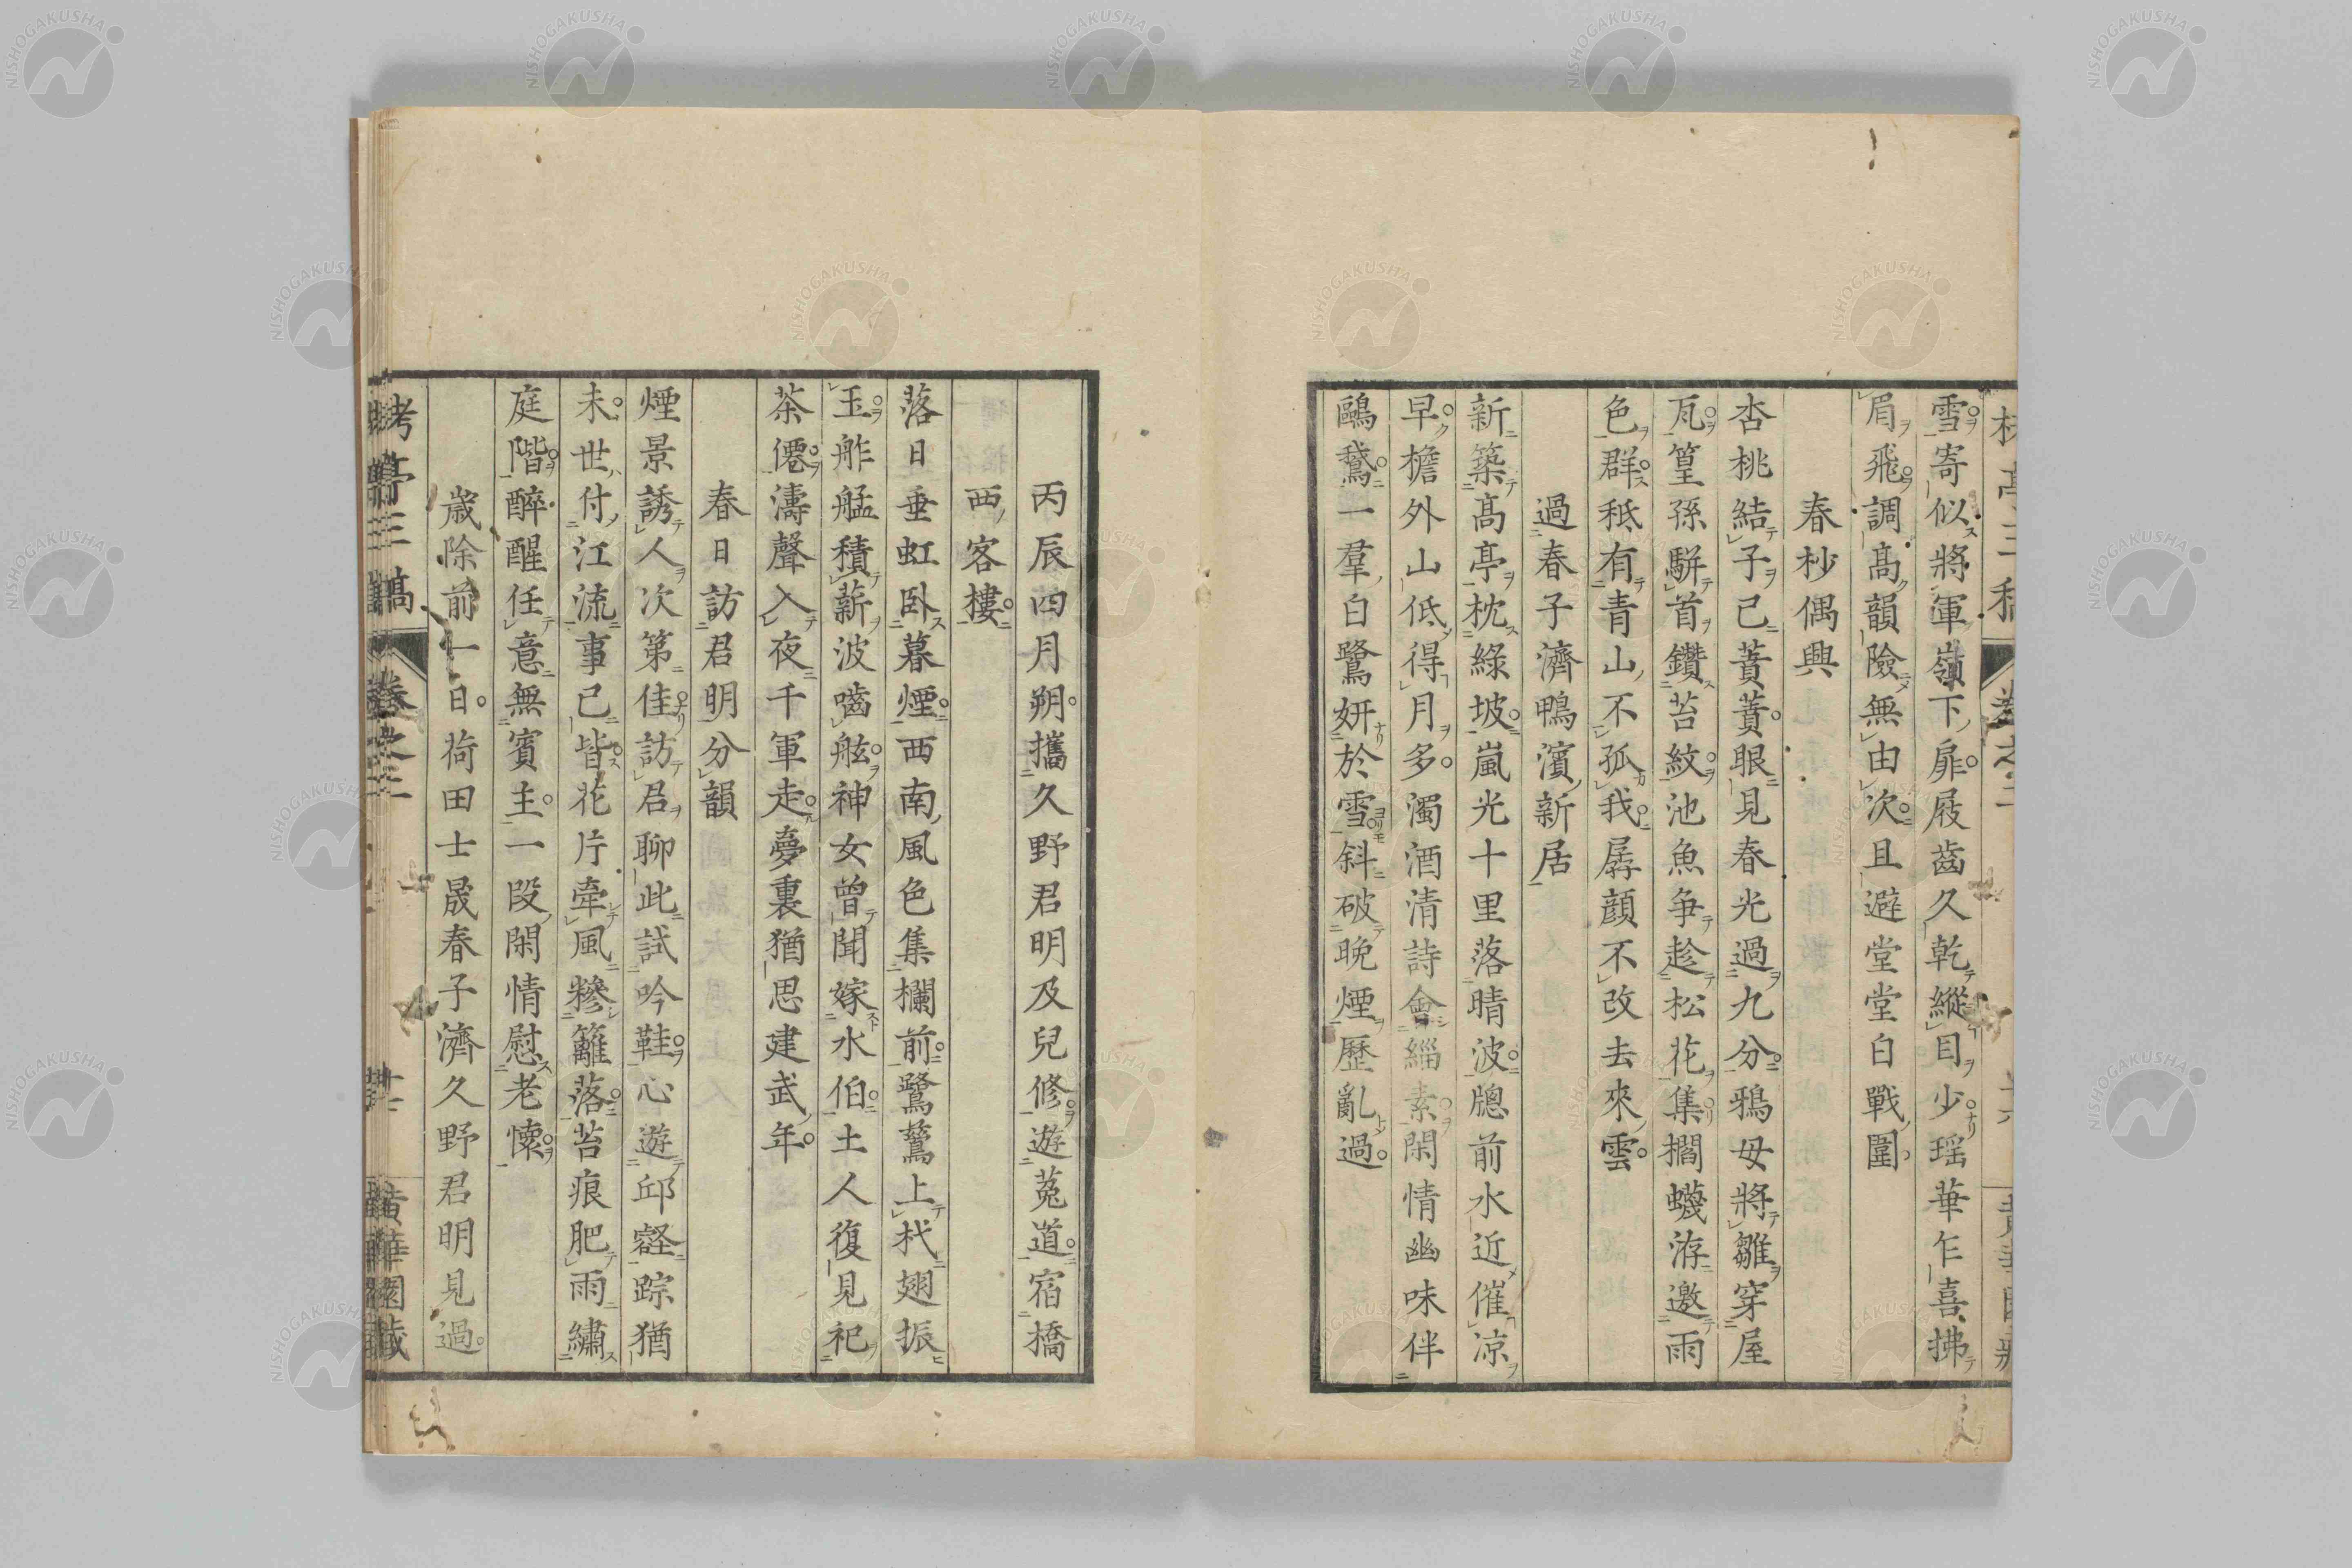 雪寄似將軍嶺下扉屐齒久乾縱目少瑶華乍喜拂
眉飛調高韻險無由次且避堂堂白戰圍
春杪偶興
杏桃結子已蕡蕡眼見春光過九分鴉母將雛穿屋
瓦篁孫駢首鑽苔紋池魚争趁松花集擱蠛洊邀雨
色群秪有青山不孤我孱顔不改去來雲
過春子濟鴨濱新居
新築高亭枕綠坡嵐光十里落晴波牕前水近催凉
早檐外山低得月多濁酒清詩會緇素閑情幽味伴
鷗鵞一羣白鷺妍於雪斜破晩煙歷亂過
丙辰四月朔攜久野君明及兒修遊菟道宿橋
西客樓
落日垂虹卧暮煙西南風色集欄前鷺鷥上杙翅振
玉舴艋積薪波嚙舷神女曾聞嫁水伯土人復見祀
茶僊濤聲入夜千軍走夢裏猶思建武年
春日訪君明分韻
煙景誘人次第佳訪君聊此試吟鞋心遊邱壑踪猶
未世付江流事已皆花片牽風糝籬落苔痕肥雨繡
庭階醉醒任意無賓主一段閑情慰老懷
歲除前一日荷田士晟春子濟久野君明見過
栲亭三稿 卷之三 黄華園藏
NISHOGAKUSHA